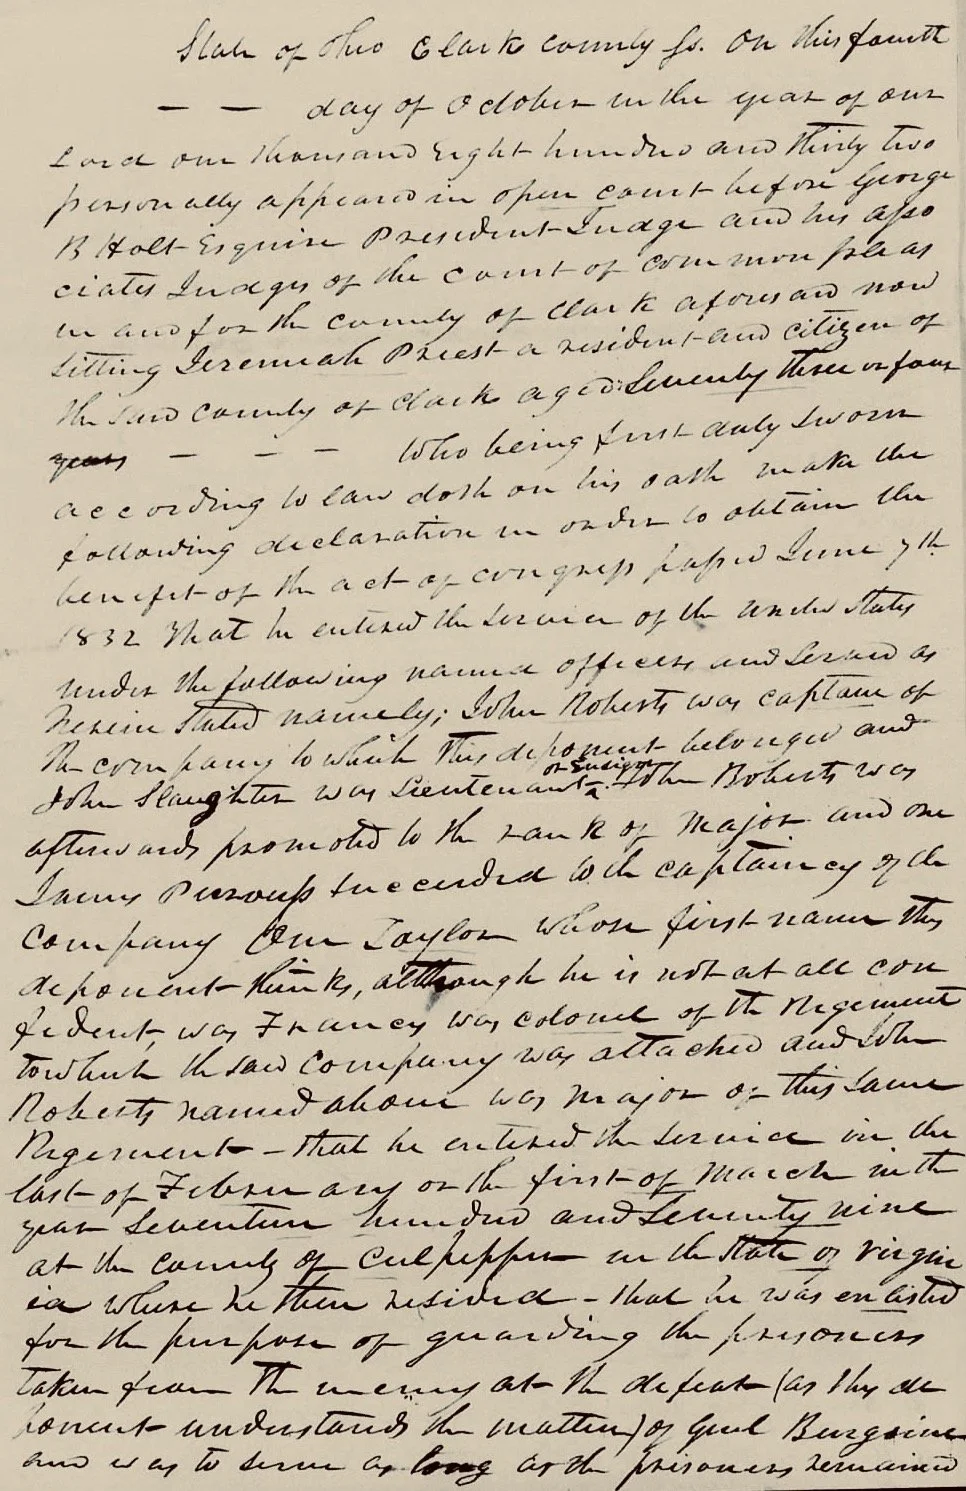 State of Ohio Clark county ss. On this fourth
— — day of October in the year of our
Lord one thousand Eight hundred and thirty two
personally appeared in open court before George
B Holt Esquire President Judge and his asso
ciates Judges of the court of common pleas
in and for the county of Clark aforesaid now
sitting Jeremiah Priest a resident and citizen of
the said county of Clark aged Seventy three or four
years — — — Who being first duly sworn
according to law doth on his oath make the
following declaration in order to obtain the
benefit of the act of congress passed June 7th
1832 That he entered the service of the United States
under the following named officers and served as
herein stated namely; John Roberts was captain of
the company to which this deponent belonged and
John Slaughter was Lieutenant or Ensign. John Roberts was
afterwards promoted to the rank of Major and one
James Purvess succeeded to the captaincy of the
company One Taylor whose first name this
deponent thinks, although he is not at all con
fident, was Francis was colonel of the Regement
to which the said company was attached and John
Roberts named above was major of this same
Regement – that he entered the service in the
last of February or the first of March in the
year Seventeen hundred and Seventy nine
at the county of Culpepper in the State of Virgin
ia where he then resided – that he was enlisted
for the purpose of guarding the prisoners
taken from the enemy at the defeat (as this de
ponent understands the matter) of Genl Burgoine
and was to serve as long as the prisoners remained